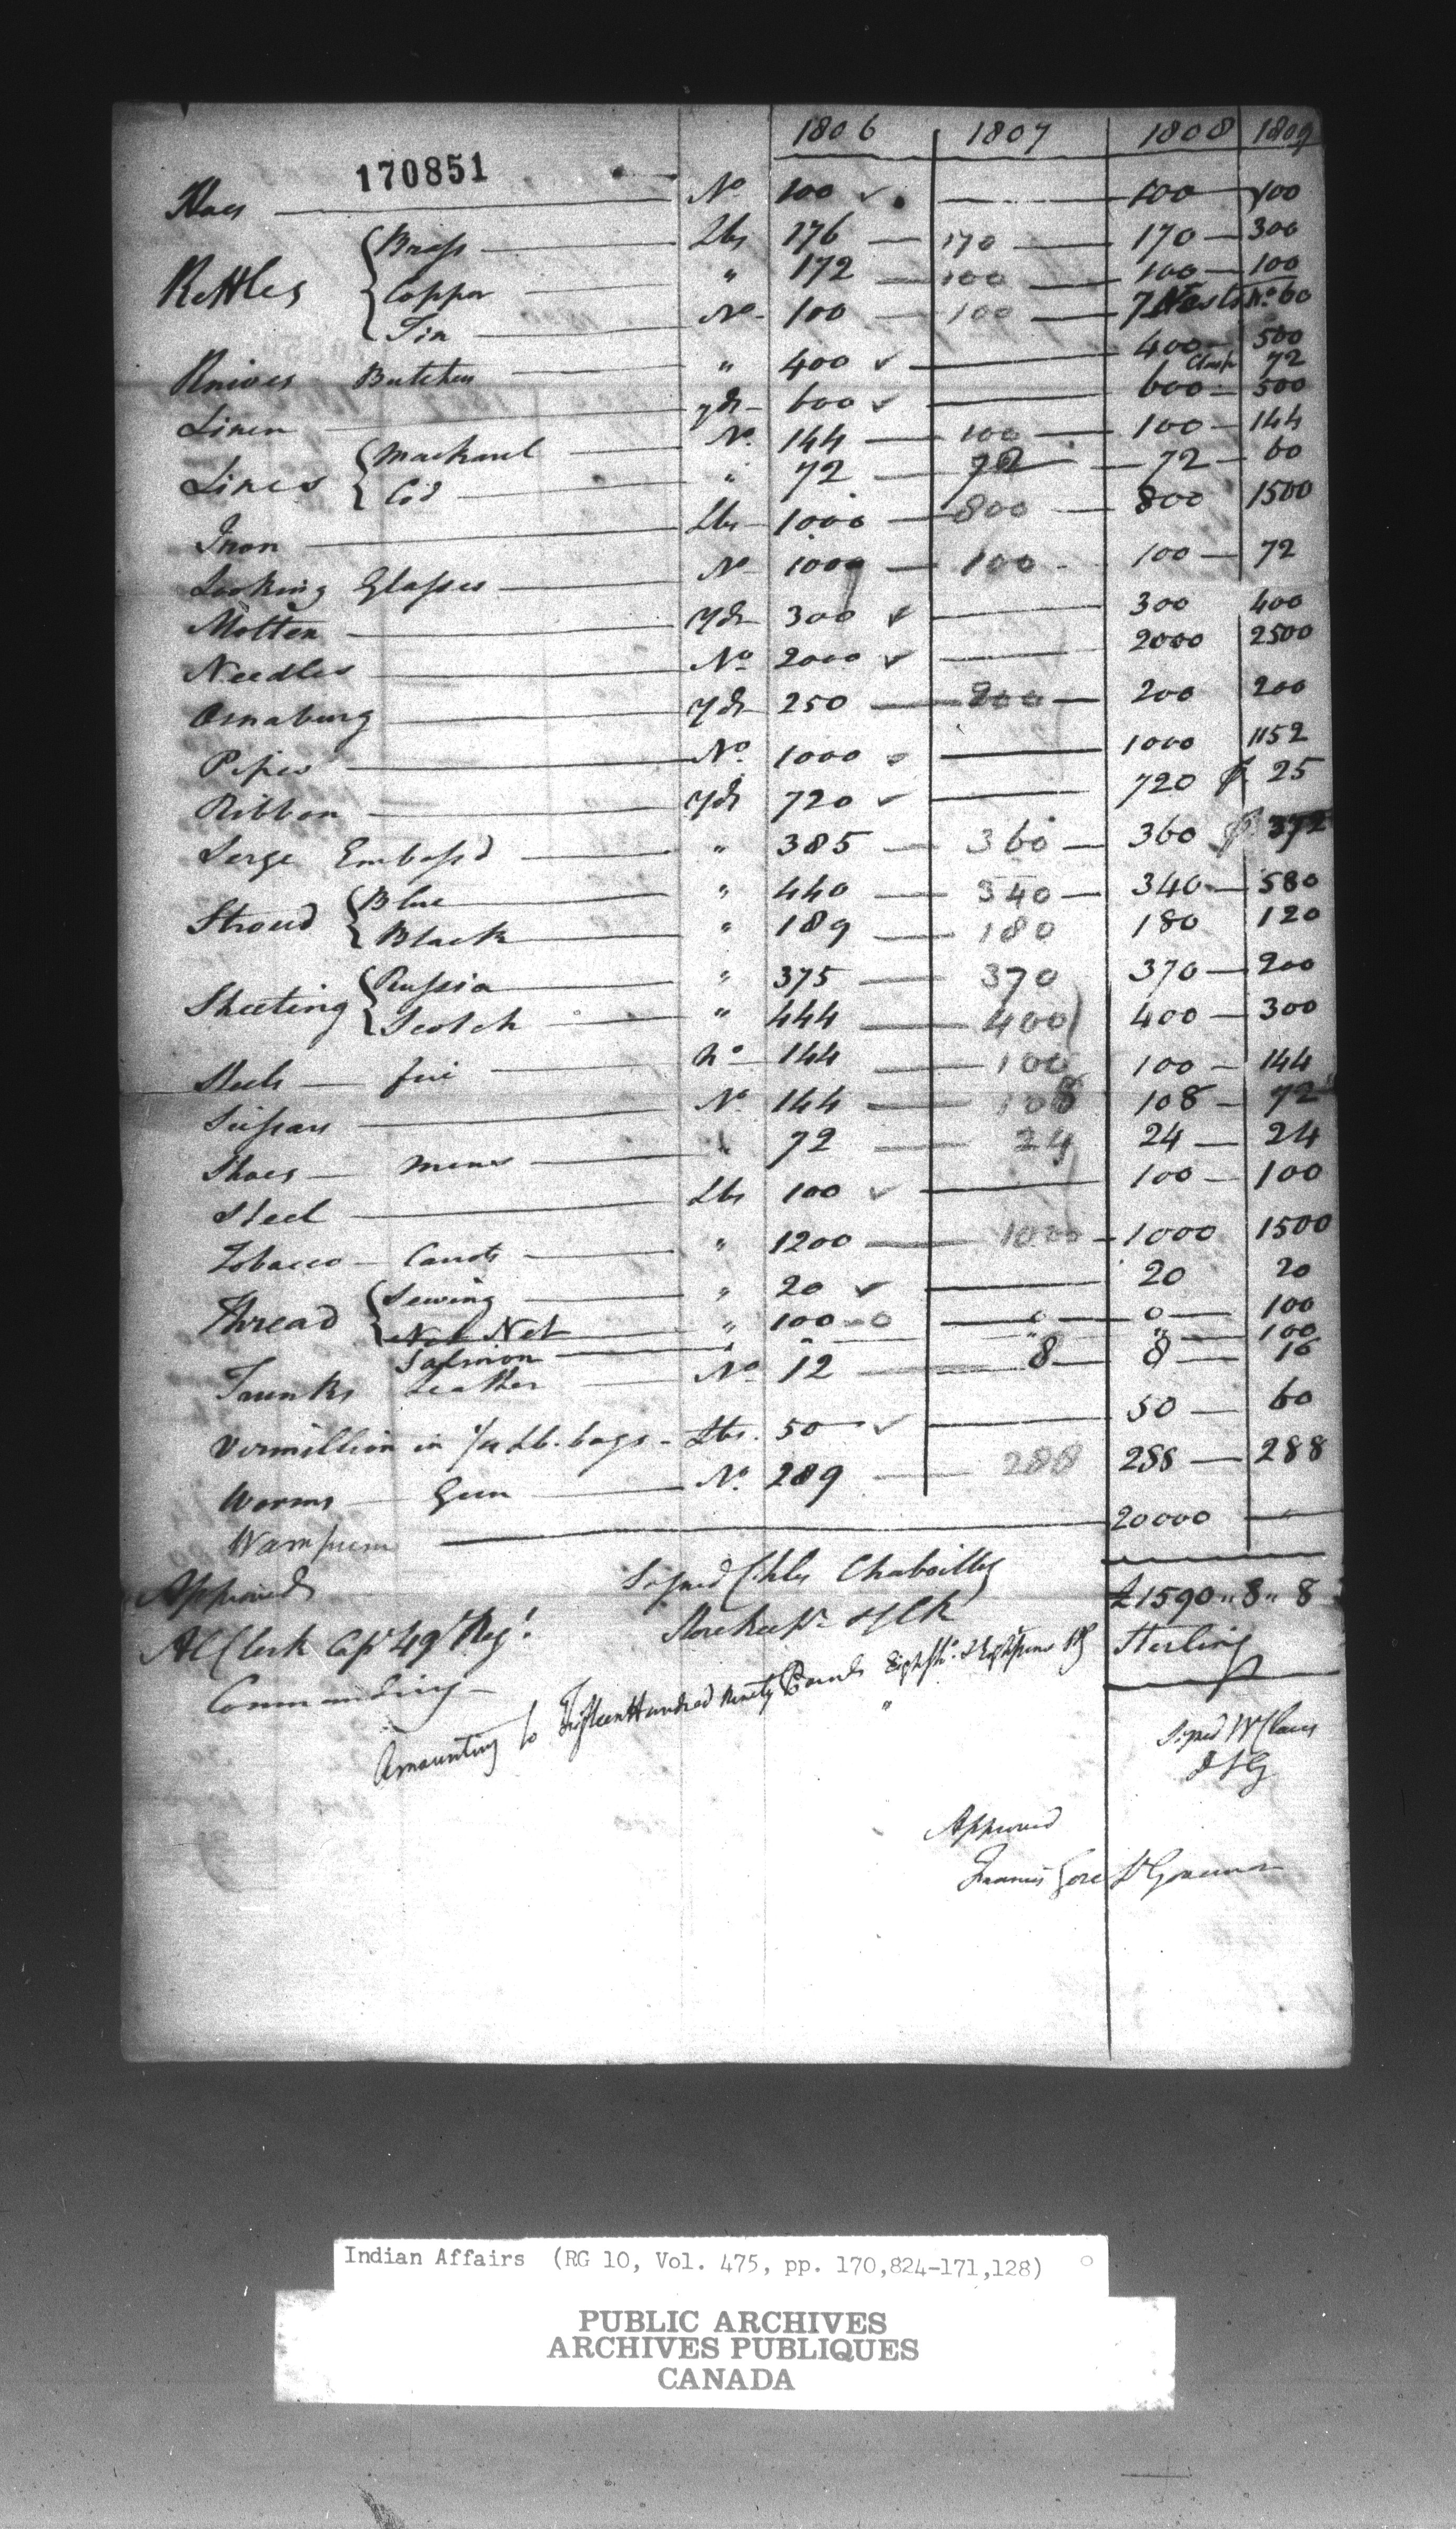 1806 1807 1808 1809
170851
Hoes No 100 ✓ 100 100
Kettles { Brass Lbs 176 170 170 300
Copper " 172 100 100 100
Tin No 100 100 7 Nests No 60
Knives Butchers " 400 ✓ 400 500
Clasp 72
Linen yds 600 ✓ 600 500
Lines { Mackarel No 144 100 100 144
Cod " 72 72 72 60
Iron Lbs 1000 800 800 1500
Looking Glasses No 100 100 72
Molton Yds 300 ✓ 300 400
Needles No 2000 ✓ 2000 2500
Osnaburg Yds 250 200 200 200
Pipes No 1000 1000 1152
Ribbon Yds 720 ✓ 720 25
Serge Emboss'd " 385 360 360 372
Stroud { Blue " 440 340 340 580
Black " 189 180 180 120
Sheeting { Russia " 375 370 370 200
Scotch " 444 400 400 300
Steels fire No 144 100 100 144
Scissars No 144 108 108 72
Shoes mens " 72 24 24 24
Steel Lbs 100 ✓ 100 100
Tobacco Carrots " 1200 1000 1000 1500
Thread { Sewing " 20 ✓ 20 20
Net " 100 0 0 0 100
Salmon " " " 100
Trunks Leather No 12 8 8 16
Vermillion in 1/4 Lb. bags Lbs. 50 ✓ 50 60
Worms Gun No. 289 288 288 288
Wampum 20000
Approved Signed Chles Chaboillez £1590 " 8 " 8
A C Clerk Capt 49th Regt Store Keepr Sterling
Commanding
Amounting to Fifteen Hundred Ninety Pounds Eight
Signed W Claus
D S G
Approved
Francis Gore Lt Governor
Indian Affairs (RG 10, Vol. 475, pp. 170,824-171,128)
PUBLIC ARCHIVES
ARCHIVES PUBLIQUES
CANADA